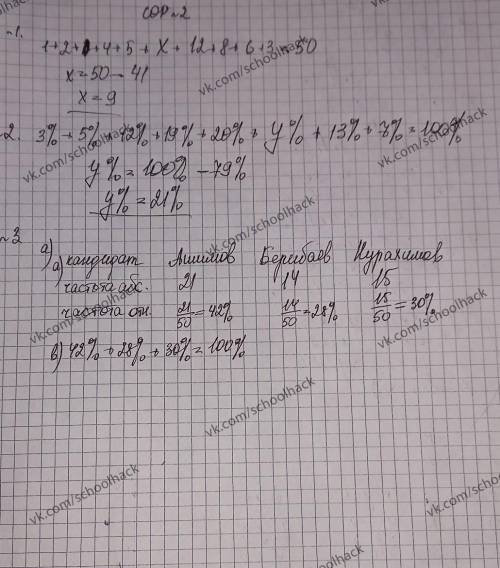 СОР №2
№1.
1+2+1+4+5+x+12+8+6+3=50
x=50-41
x=9
2. 3%+5%+12%+19%+20%+y%+13%+7%=100%
y%=100%-79%
y%=21%
№3 а)
а) кандидат Ашимов Берикбаев Нурахимов
частота абс. 21 14 15
частота отн. 21/50=42% 14/50=28% 15/50=30%
в) 42%+28%+30%=100%
vk.com/schoolhack
vk.com/schoolhack
vk.com/schoolhack
vk.com/schoolhack
vk.com/schoolhack
vk.com/schoolhack
vk.com/schoolhack
vk.com/schoolhack
vk.com/schoolhack